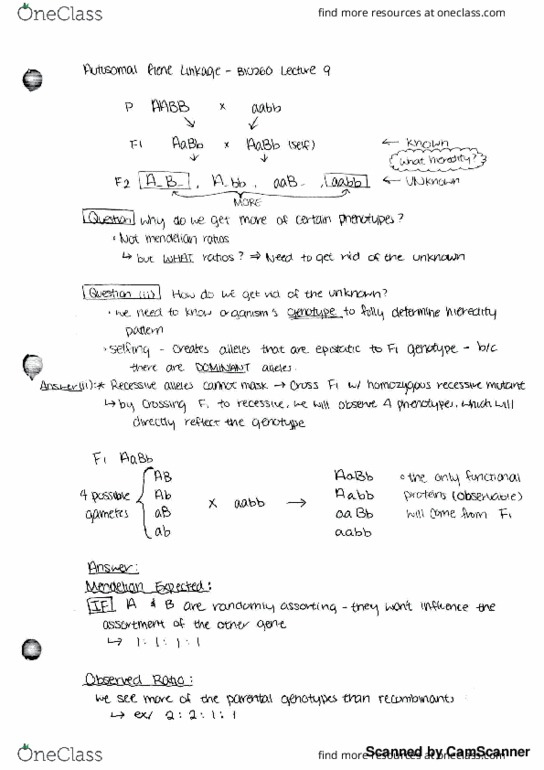 OneClass
find more resources at oneclass.com
Autosomal Gene Linkage - BIO260 Lecture 9
P AABB x aabb
F1 AaBb x AaBb (self) ← Known
what heredity?
F2 A_B_ , A_bb , aaB_ , aabb ← Unknown
MORE
Question Why do we get more of certain phenotypes?
• Not mendelian ratios
↳ but WHAT ratios? ⇒ Need to get rid of the unknown
Question (ii) How do we get rid of the unknown?
• we need to know organism's genotype to fully determine heredity
pattern
• selfing - creates alleles that are epistatic to F1 genotype - b/c
there are DOMINANT alleles.
Answer(ii):* Recessive alleles cannot mask → Cross F1 w/ homozygous recessive mutant
↳ by crossing F1 to recessive, we will observe 4 phenotypes, which will
directly reflect the genotype
F1 AaBb
4 possible gametes { AB Ab aB ab x aabb → AaBb Aabb aaBb aabb
• the only functional
proteins (observable)
will come from F1
Answer:
Mendelian Expected:
IF A & B are randomly assorting - they won't influence the
assortment of the other gene
↳ 1:1:1:1
Observed Ratio:
we see more of the parental genotypes than recombinants
↳ ex/ 2:2:1:1
OneClass
find more resources at oneclass.com
Scanned by CamScanner